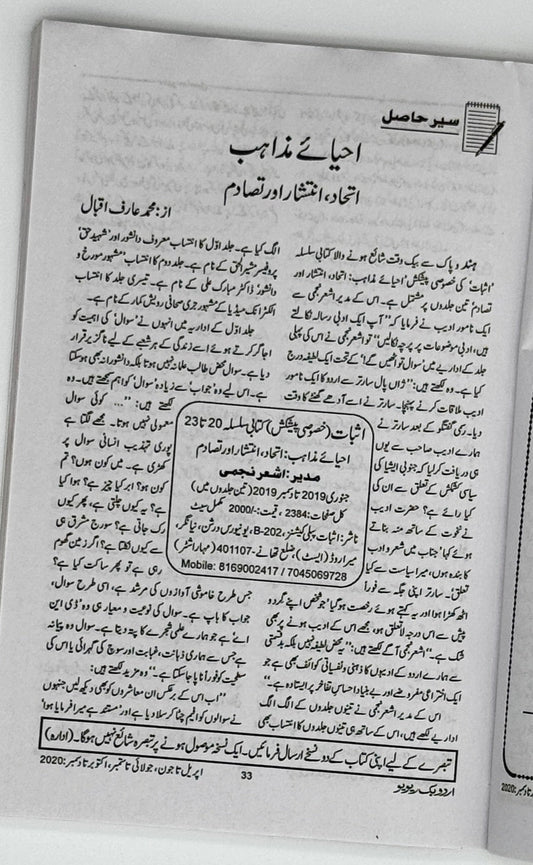 سیر حاصل
احیائے مذاہب
اتحاد، انتشار اور تصادم
از: محمد عارف اقبال
ہند و پاک سے بیک وقت شائع ہونے والا کتابی سلسلہ
’اثبات‘ کی خصوصی پیشکش ’احیائے مذاہب: اتحاد، انتشار اور
تصادم‘ تین جلدوں پر مشتمل ہے۔ اس کے مدیر اشعر نجمی سے
ایک نامور ادیب نے فرمایا کہ ’’آپ ایک ادبی رسالہ نکالتے
ہیں، ادبی موضوعات پر پرچہ نکالیں‘‘ تو اشعر نجمی نے اس کی پہلی
جلد کے اداریے میں ’سوال تو اٹھیں گے!‘ کے تحت ایک لطیفہ درج
کیا ہے۔ وہ لکھتے ہیں: ’’ژاں پال سارتر سے اردو کا ایک نامور
ادیب ملاقات کرنے پہنچا۔ سارتر نے اسے آدھے گھنٹے کا وقت
دیا۔ رسمی گفتگو کے بعد سارتر نے
ہمارے ادیب صاحب سے یوں
ہی دریافت کر لیا کہ جنوبی ایشیا کی
سیاسی کشمکش کے تعلق سے ان کی
کیا رائے ہے؟ حضرت ادیب
نے نخوت سے منہ بناتے
ہوئے کہا ’جناب میں شعر و ادب
کا بندہ ہوں، میرا سیاست سے کیا
تعلق!‘ سارتر اپنی جگہ سے فوراً
اٹھ کھڑا ہوا اور یہ کہتے ہوئے رخصت ہوگیا ’جو شخص اپنے گرد و
پیش سے اس درجہ لاتعلق ہو، مجھے اس کے ادیب ہونے پر بھی
شک ہے۔‘‘ اشعر نجمی آگے لکھتے ہیں: ’’یہ محض لطیفہ نہیں بلکہ بدقسمتی
سے ہمارے اردو کے ادیبوں کا ذہنی و نفسیاتی کوائف بھی ہے جو
ایک اختراعی مفروضے اور بے بنیاد احساس تفاخر پر ایستادہ ہے۔‘‘
اس کے مدیر اشعر نجمی نے تینوں جلدوں کے الگ الگ
اداریے لکھے ہیں، اس کے ساتھ ہی تینوں جلدوں کا انتساب بھی
الگ کیا ہے۔ جلد اوّل کا انتساب معروف دانشور اور ’شہید حق‘
پروفیسر مشیر الحق کے نام ہے۔ جلد دوم کا انتساب ’مشہور مورخ و
دانشور‘ ڈاکٹر مبارک علی کے نام ہے۔ تیسری جلد کا انتساب
الکٹرانک میڈیا کے مشہور جری صحافی رویش کمار کے نام ہے۔
جلد اوّل کے اداریہ میں انہوں نے ’سوال‘ کی اہمیت کو
اجاگر کرتے ہوئے اسے زندگی کے ہر شعبے کے لیے ناگزیر قرار
دیا ہے۔ سوال محض طالب علمانہ نہیں ہوتا بلکہ دانشورانہ بھی ہوسکتا
ہے۔ اس لیے وہ ’جواب‘ سے زیادہ ’سوال‘ کو اہم سمجھتے ہیں۔ وہ
لکھتے ہیں: ’’... کوئی سوال
معمولی نہیں ہوتا۔ مجھے لگتا ہے
پوری تہذیب انسانی سوال پر
کھڑی ہے۔ میں کون ہوں؟ تم
کون ہو؟ ابر کیا چیز ہے؟ ہوا کیا
ہے؟ یہ کیوں چلتی ہے، پھر کیوں
رک جاتی ہے؟ سورج مشرق ہی
سے کیوں نکلتا ہے؟ اگر زمین گھوم
رہی ہے تو پھر ساکت کیا ہے؟
جس طرح خاموشی آوازوں کی مرشد ہے، اسی طرح سوال،
جواب کا باپ ہے۔ سوال کی نوعیت و معیار ہی وہ ڈی این
اے ہے جو ہمارے علمی شجرے کا پتہ دیتا ہے۔ سوال وہ پیمانہ
ہے جس سے ہماری ذہانت، غبابت اور سوچ کی گہرائی یا اس کی
سطحیت کو فوراً ناپا جاسکتا ہے۔‘‘ وہ مزید لکھتے ہیں:
’’اب اس کے برعکس ان معاشروں کو بھی دیکھ لیں جنہوں
نے سوالوں کو افیم چٹا کر سلا دیا ہے اور ’مستند ہے میرا فرمایا ہوا‘
اثبات (خصوصی پیشکش) کتابی سلسلہ 20 تا 23
احیائے مذاہب: اتحاد، انتشار اور تصادم
مدیر: اشعر نجمی
جنوری 2019 تا دسمبر 2019 (تین جلدوں میں)
کل صفحات: 2384، قیمت: -/2000 مکمل سیٹ
ناشر: اثبات پبلی کیشنز، B-202، یونیورس درشن، نیا نگر،
میرا روڈ (ایسٹ)، ضلع تھانے-401107 (مہاراشٹر)
Mobile: 8169002417 / 7045069728
تبصرے کے لیے اپنی کتاب کے دو نسخے ارسال فرمائیں۔ ایک نسخہ موصول ہونے پر تبصرہ شائع نہیں ہوگا۔ (ادارہ)
اردو بک ریویو
33
اپریل تا جون، جولائی تا ستمبر، اکتوبر تا دسمبر: 2020